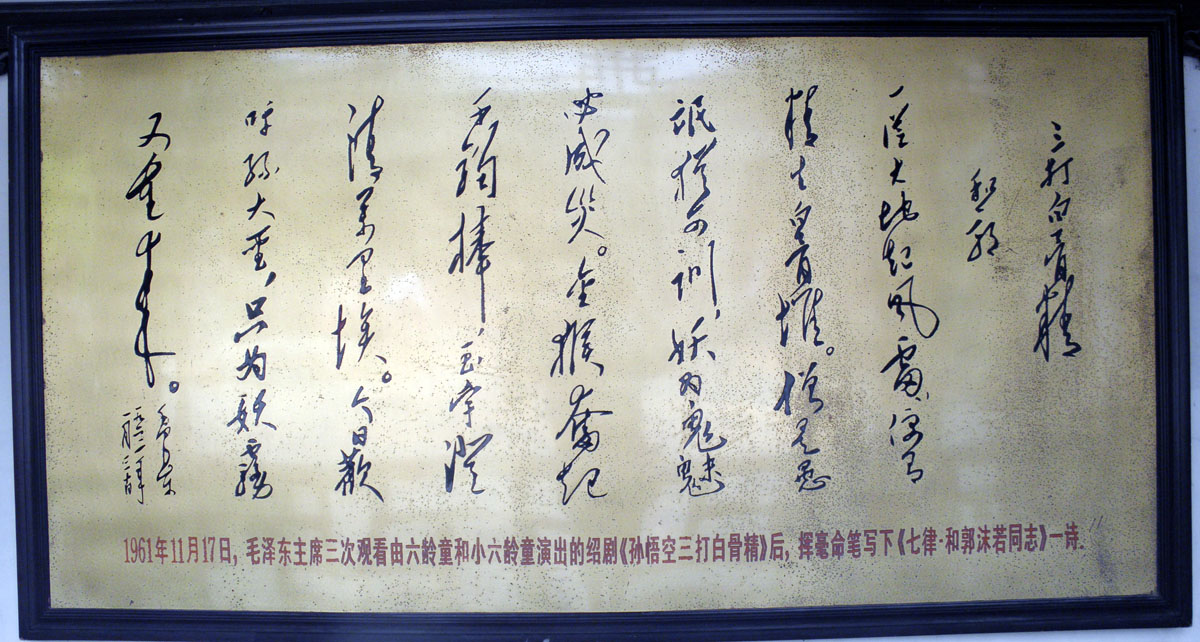 三打白骨精
和郭
一從大地起風雷,便有
精生白骨堆。僧是愚
氓猶可訓,妖为鬼魅
必成災。金猴奮起
千鈞棒,玉宇澄
清萬里埃。今日歡
呼孫大聖,只为妖霧
又重来。
毛泽东
1961年11月17日,毛泽东主席三次观看由六龄童和小六龄童演出的绍剧《孙悟空三打白骨精》后,挥毫命笔写下《七律·和郭沫若同志》一诗.